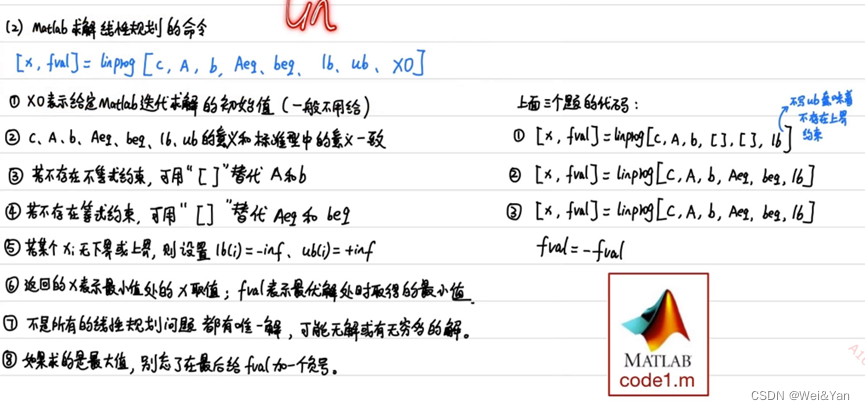 (2) Matlab求解线性规划的命令
[x, fval] = linprog[c, A, b, Aeq、beq、lb、ub、X0]
① X0表示给定Matlab迭代求解的初始值（一般不用给）
② c、A、b、Aeq、beq、lb、ub的意义和标准型中的意义一致
③ 若不存在不等式约束，可用“[ ]”替代 A和b
④ 若不存在等式约束，可用“[ ]”替代 Aeq 和 beq
⑤ 若某个 xi 无下界或上界，则设置 lb(i)=-inf、ub(i)=+inf
⑥ 返回的x表示最小值处的x取值；fval表示最优解处时取得的最小值
⑦ 不是所有的线性规划问题都有唯一解，可能无解或有无穷多的解。
⑧ 如果求的是最大值，别忘了在最后给fval加一个负号。
上面三个题的代码：
① [x, fval]=linprog[c, A, b, [], [], lb]
不写ub意味着
不存在上界
约束
② [x, fval]=linprog[c, A, b, Aeq, beq, lb]
③ [x, fval]=linprog[c, A, b, Aeq, beq, lb]
fval=-fval
MATLAB
code1.m
CSDN @Wei&Yan